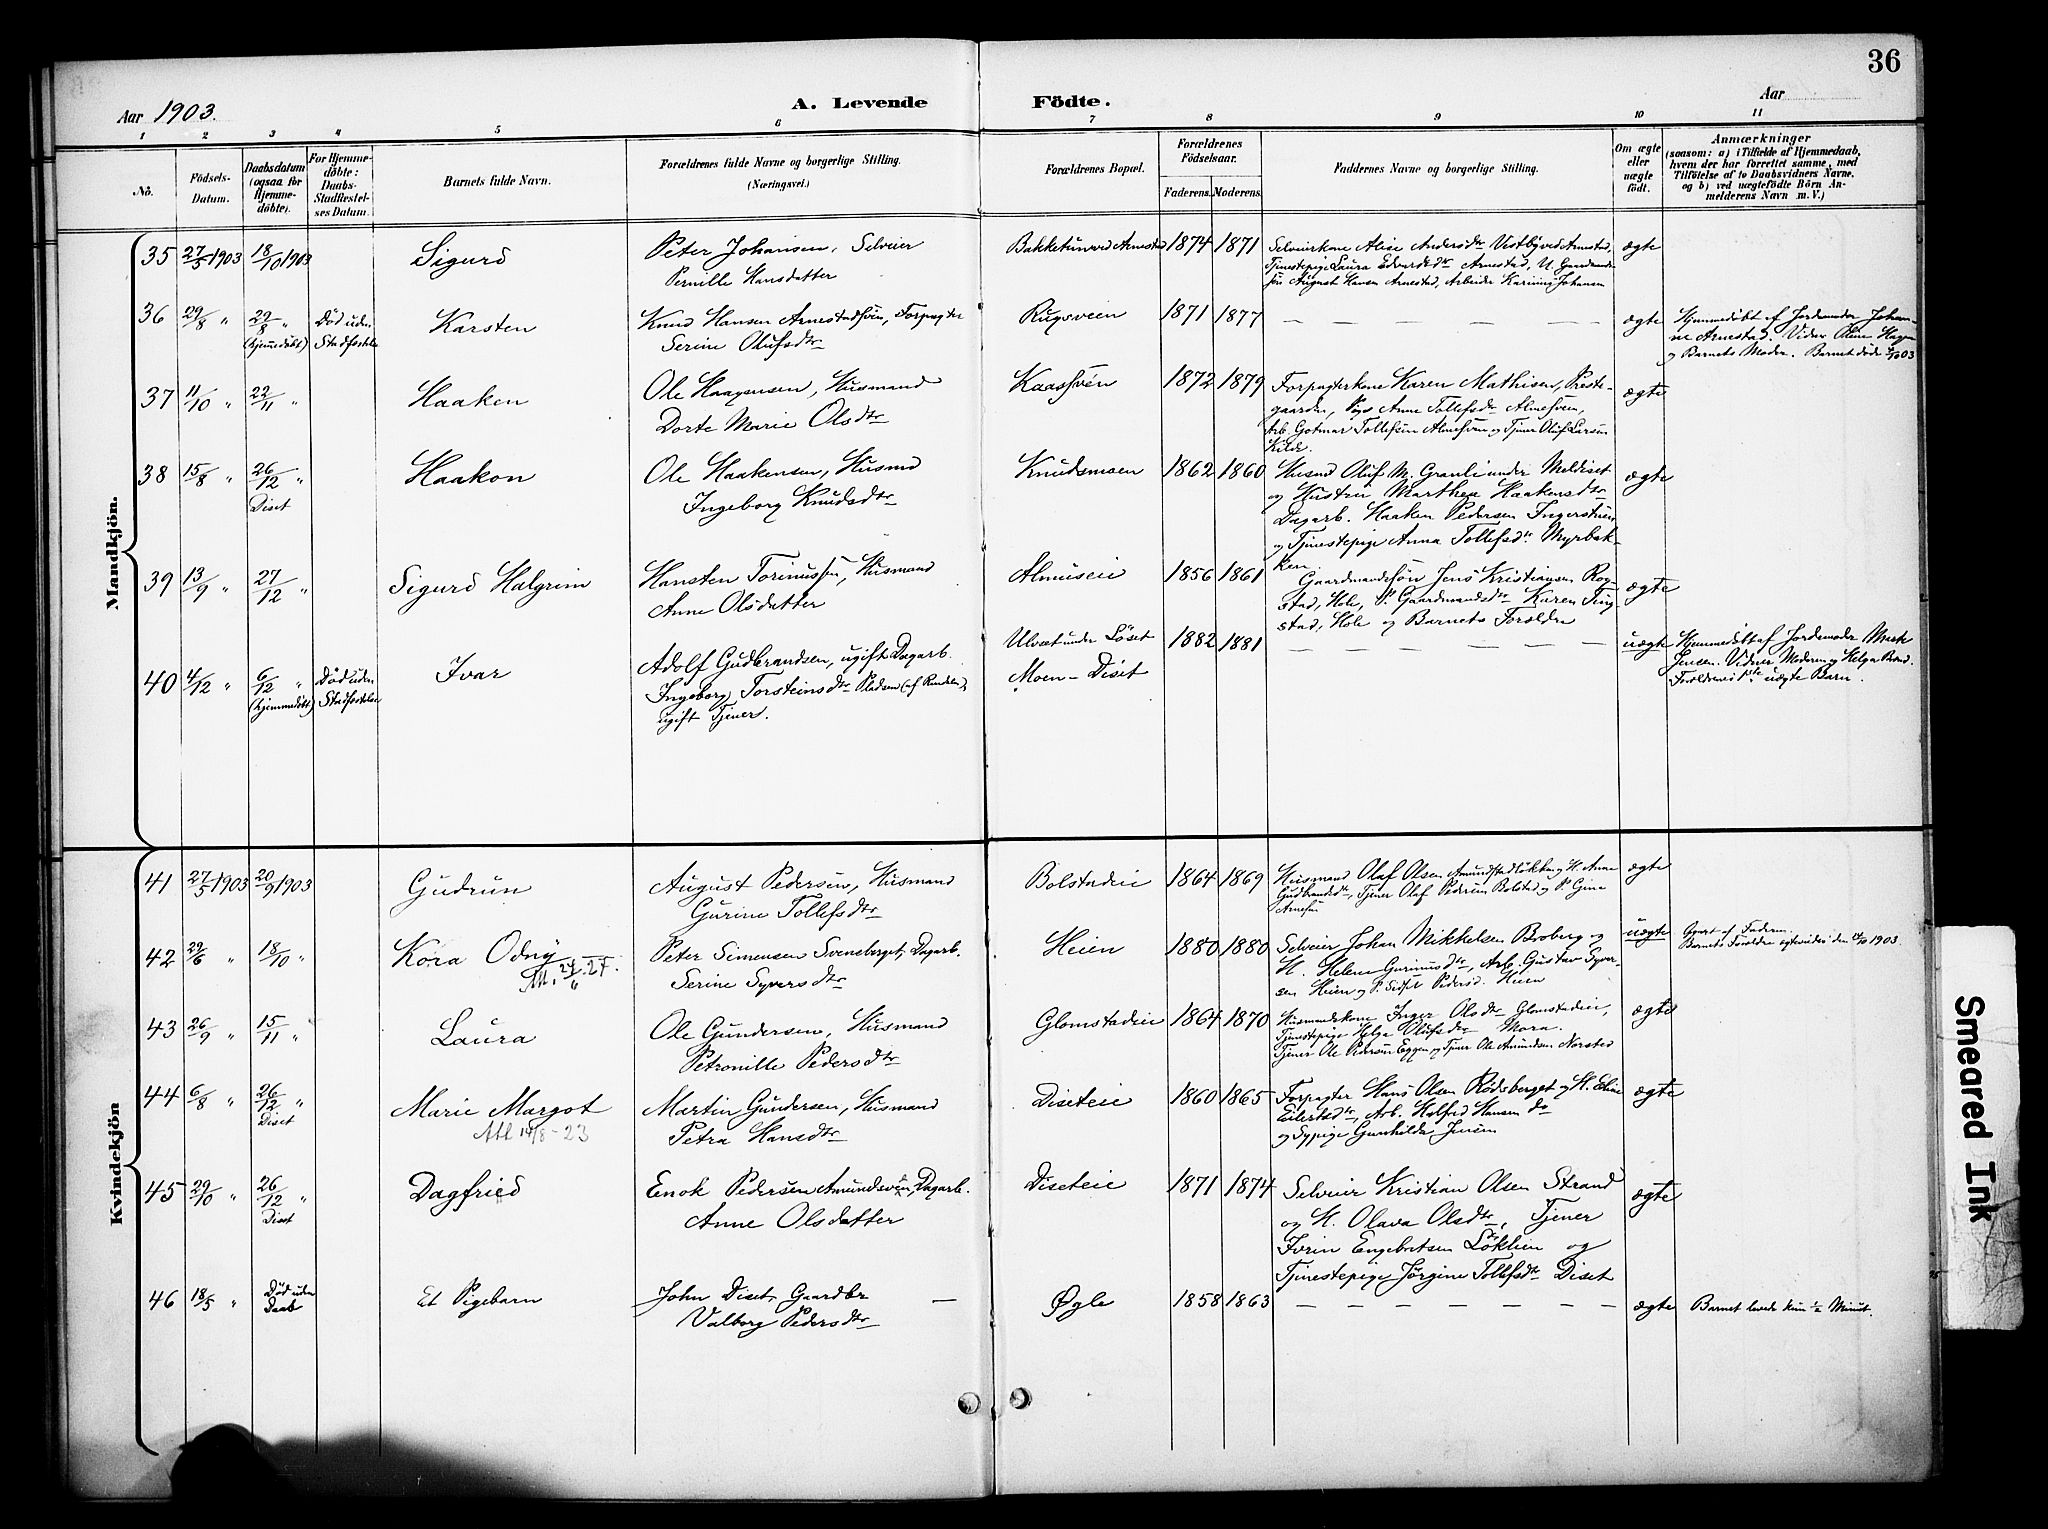 36
Aar 1903.
A. Levende Födte.
Aar
1 2 3 4 5 6 7 8 9 10 11
No.
Födsels-Datum.
Daabsdatum (ogsaa for Hjemme-döbte).
For Hjemme-döbte: Daabs-Stadfæstel-ses Datum.
Barnets fulde Navn.
Forældrenes fulde Navne og borgerlige Stilling. (Næringsvei.)
Forældrenes Bopæl.
Forældrenes Födselsaar.
Faderens. Moderens.
Faddernes Navne og borgerlige Stilling.
Om ægte eller uægte födt.
Anmærkninger
(saasom: a) i Tilfælde af Hjemmedaab, hvem der har forrettet samme, med Tilföielse af to Daabsvidners Navne, og b) ved uægtefödte Börn An-melderens Navn m. V.)
Mandkjön.
35 27/5 1903 18/10 1903 Sigurd Peter Johansen, Selveier Bakketun ved Arnestad 1874 1871 Selveierkone Alise Andersdtr Vestby ved Arnestad, ægte
Pernille Hansdatter Tjenestepige Laura Edvardsdtr Arnestad, U. Gaardmands-
søn August Hansen Arnestad, Arbeider Johansen
36 29/8 " 29/8 " Død uden Karsten Knud Hansen Arnestadsveen, Forpagter Rugsveen 1871 1877 — — — — — — ægte Hjemmedöbt af Jordemoder Johan-
(hjemmedöbt) Stadfæstelse Serine Olufsdtr ne Arnestad. Vidner Oline Hagen
og Barnets Moder. Barnet døde 03
37 11/10 " 22/11 " Haaken Ole Haagensen, Husmand Kaassveen 1872 1879 Forpagterkone Karen Mathisen, Preste- ægte
Dorte Marie Olsdtr gaarden, Pige Anne Tollefsdtr Almesveen,
Arb. Gotmar Tollefsen Almesveen og Tjener Oluf Larsen
Kilde.
38 15/8 " 26/12 " Haakon Ole Haakensen, Husmd Knudsmoen 1862 1860 Husmd Oluf M. Granli under Meldiset ægte
Diset Ingeborg Knudsdtr og Hustru Marthea Haakensdtr
Dagarb. Haaken Pedersen Ingerstuen
og Tjenestepige Anna Tollefsdtr Myrbak-
ken.
39 13/9 " 27/12 " Sigurd Halgrim Hansten Torinussen, Husmand Almuseie 1856 1861 Gaardmandssøn Jens Kristiansen Rog- ægte
Anne Olsdatter stad, Hole, P. Gaardmandsdtr Karen Ting-
stad, Hole og Barnets Forældre
40 4/12 " 6/12 " Død uden Ivar Adolf Gudbrandsen, ugift Dagarb. Ulvset under Löset 1882 1881 — — — — — — uægte Hjemmedöbt af Jordemoder
(hjemmedöbt) Stadfæstelse Ingeborg Torsteinsdtr Pladsen (af Rendalen), Moen - Diset Jensen. Vidner Moderen og Helga
ugift Tjener. Forældrenes 1ste uægte Barn.
Kvindekjön
41 27/5 1903 20/9 1903 Gudrun August Pedersen, Husmand Bolstadeie 1864 1869 Husmand Olaf Olsen Amundstadløkken og H. Anne ægte
Gurine Tollefsdtr Gudbrandsdtr, Tjener Olaf Pedersen Bolstad og P. Gina
Arnesen
42 29/6 " 18/10 " Kora Odny Peter Simensen Svensberget, Dagarb. Heien 1880 1880 Selveier Johan Mikkelsen Broberg og uægte Gjort af Faderen.
Att. 24/6 - 27. Serine Syversdtr H. Helene Gurinusdtr, Arb. Gustav Syver- Barnets Forældre egteviedes den 18/10 1903.
sen Heien og P. Pedersd. Heien
43 26/9 " 15/11 " Laura Ole Gundersen, Husmand Glomstadeie 1864 1870 Husmandskone Inger Olsdtr Glomstadeie, ægte
Petronille Pedersdtr Tjenestepige Helga Olufsdtr Mora.
Tjener Ole Pedersen Eggen og Tjener Ole Amundsen Norsted
44 6/8 " 26/12 " Marie Margot Martin Gundersen, Husmand Diseteie 1860 1865 Forpagter Hans Olsen Rødsberget og H. Eline ægte
Diset Att 14/8 - 23 Petra Hansdtr Eilertsdtr, Arb. Halfred Hansen do
og Sypige Gunhilda Jensen
45 29/10 " 26/12 " Dagfried Enok Pedersen Amundsveen, Dagarb. Diseteie 1871 1874 Selveier Kristian Olsen Strand ægte
Diset Anne Olsdatter og H. Olava Olsdtr, Tjener
Iverin Engebretsen Løkken og
Tjenestepige Jørgine Tollefsdtr Diset
46 18/5 " Död uden Et Pigebarn John Diset, Gaardbr — Øgle 1858 1863 — — — — — — — ægte Barnet levede kun 1/2 Minut.
Daab Valborg Pedersdtr
Smeared Ink